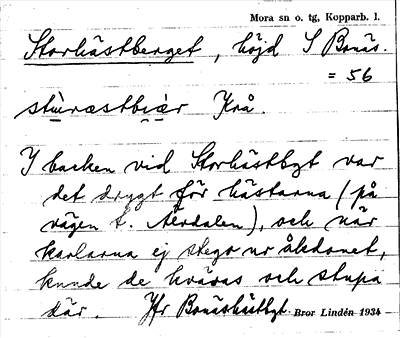 Mora sn o. tg, Kopparb. l.
Storhästberget, höjd S Bonäs.
= 56
stùræstbiær Krå.
I backen vid Storhästbgt var
det drygt för hästarna (på
vägen t. Älvdalen), och när
karlarna ej stego ur åkdonet,
kunde de kvävas och stupa
där. Jfr Bonäshästbgt. Bror Lindén 1934